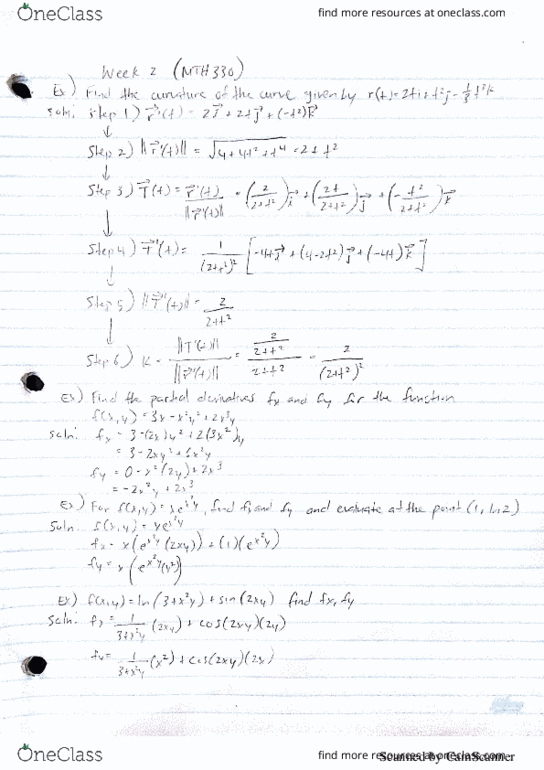 OneClass
find more resources at oneclass.com
Week 2 (MTH330)
Ex) Find the curvature of the curve given by r(t)=2ti+t²j-⅓t³k
soln: Step 1) r⃗'(t) = 2i⃗+2tj⃗+(-t²)k⃗
↓
Step 2) ||r⃗'(t)|| = √4+4t²+t⁴ = 2+t²
↓
Step 3) T⃗(t) = r⃗'(t)/||r⃗'(t)|| = (2/2+t²)i⃗+(2t/2+t²)j⃗+(-t²/2+t²)k⃗
↓
Step 4) T⃗'(t) = 1/(2+t²)² [-4ti⃗+(4-2t²)j⃗+(-4t)k⃗]
↓
Step 5) ||T⃗'(t)|| = 2/2+t²
↓
Step 6) K = ||T'(t)||/||r⃗'(t)|| = 2/2+t²/2+t² = 2/(2+t²)²
Ex) Find the partial derivatives fx and fy for the function
f(x,y) = 3x-x²y²+2x³y
soln: fx = 3-(2x)y²+2(3x²)y
= 3-2xy²+6x²y
fy = 0-x²(2y)+2x³
= -2x²y+2x³
Ex) For f(x,y)=xe^x²y, find fx and fy and evaluate at the point (1,ln2)
Soln: f(x,y) = xe^x²y
fx = x(e^x²y(2xy))+(1)(e^x²y)
fy = x(e^x²y(x²))
Ex) f(x,y)=ln(3+x²y)+sin(2xy) find fx, fy
Soln: fx = 1/3+x²y (2xy)+cos(2xy)(2y)
fy = 1/3+x²y (x²)+cos(2xy)(2x)
OneClass
find more resources at oneclass.com
Scanned by CamScanner